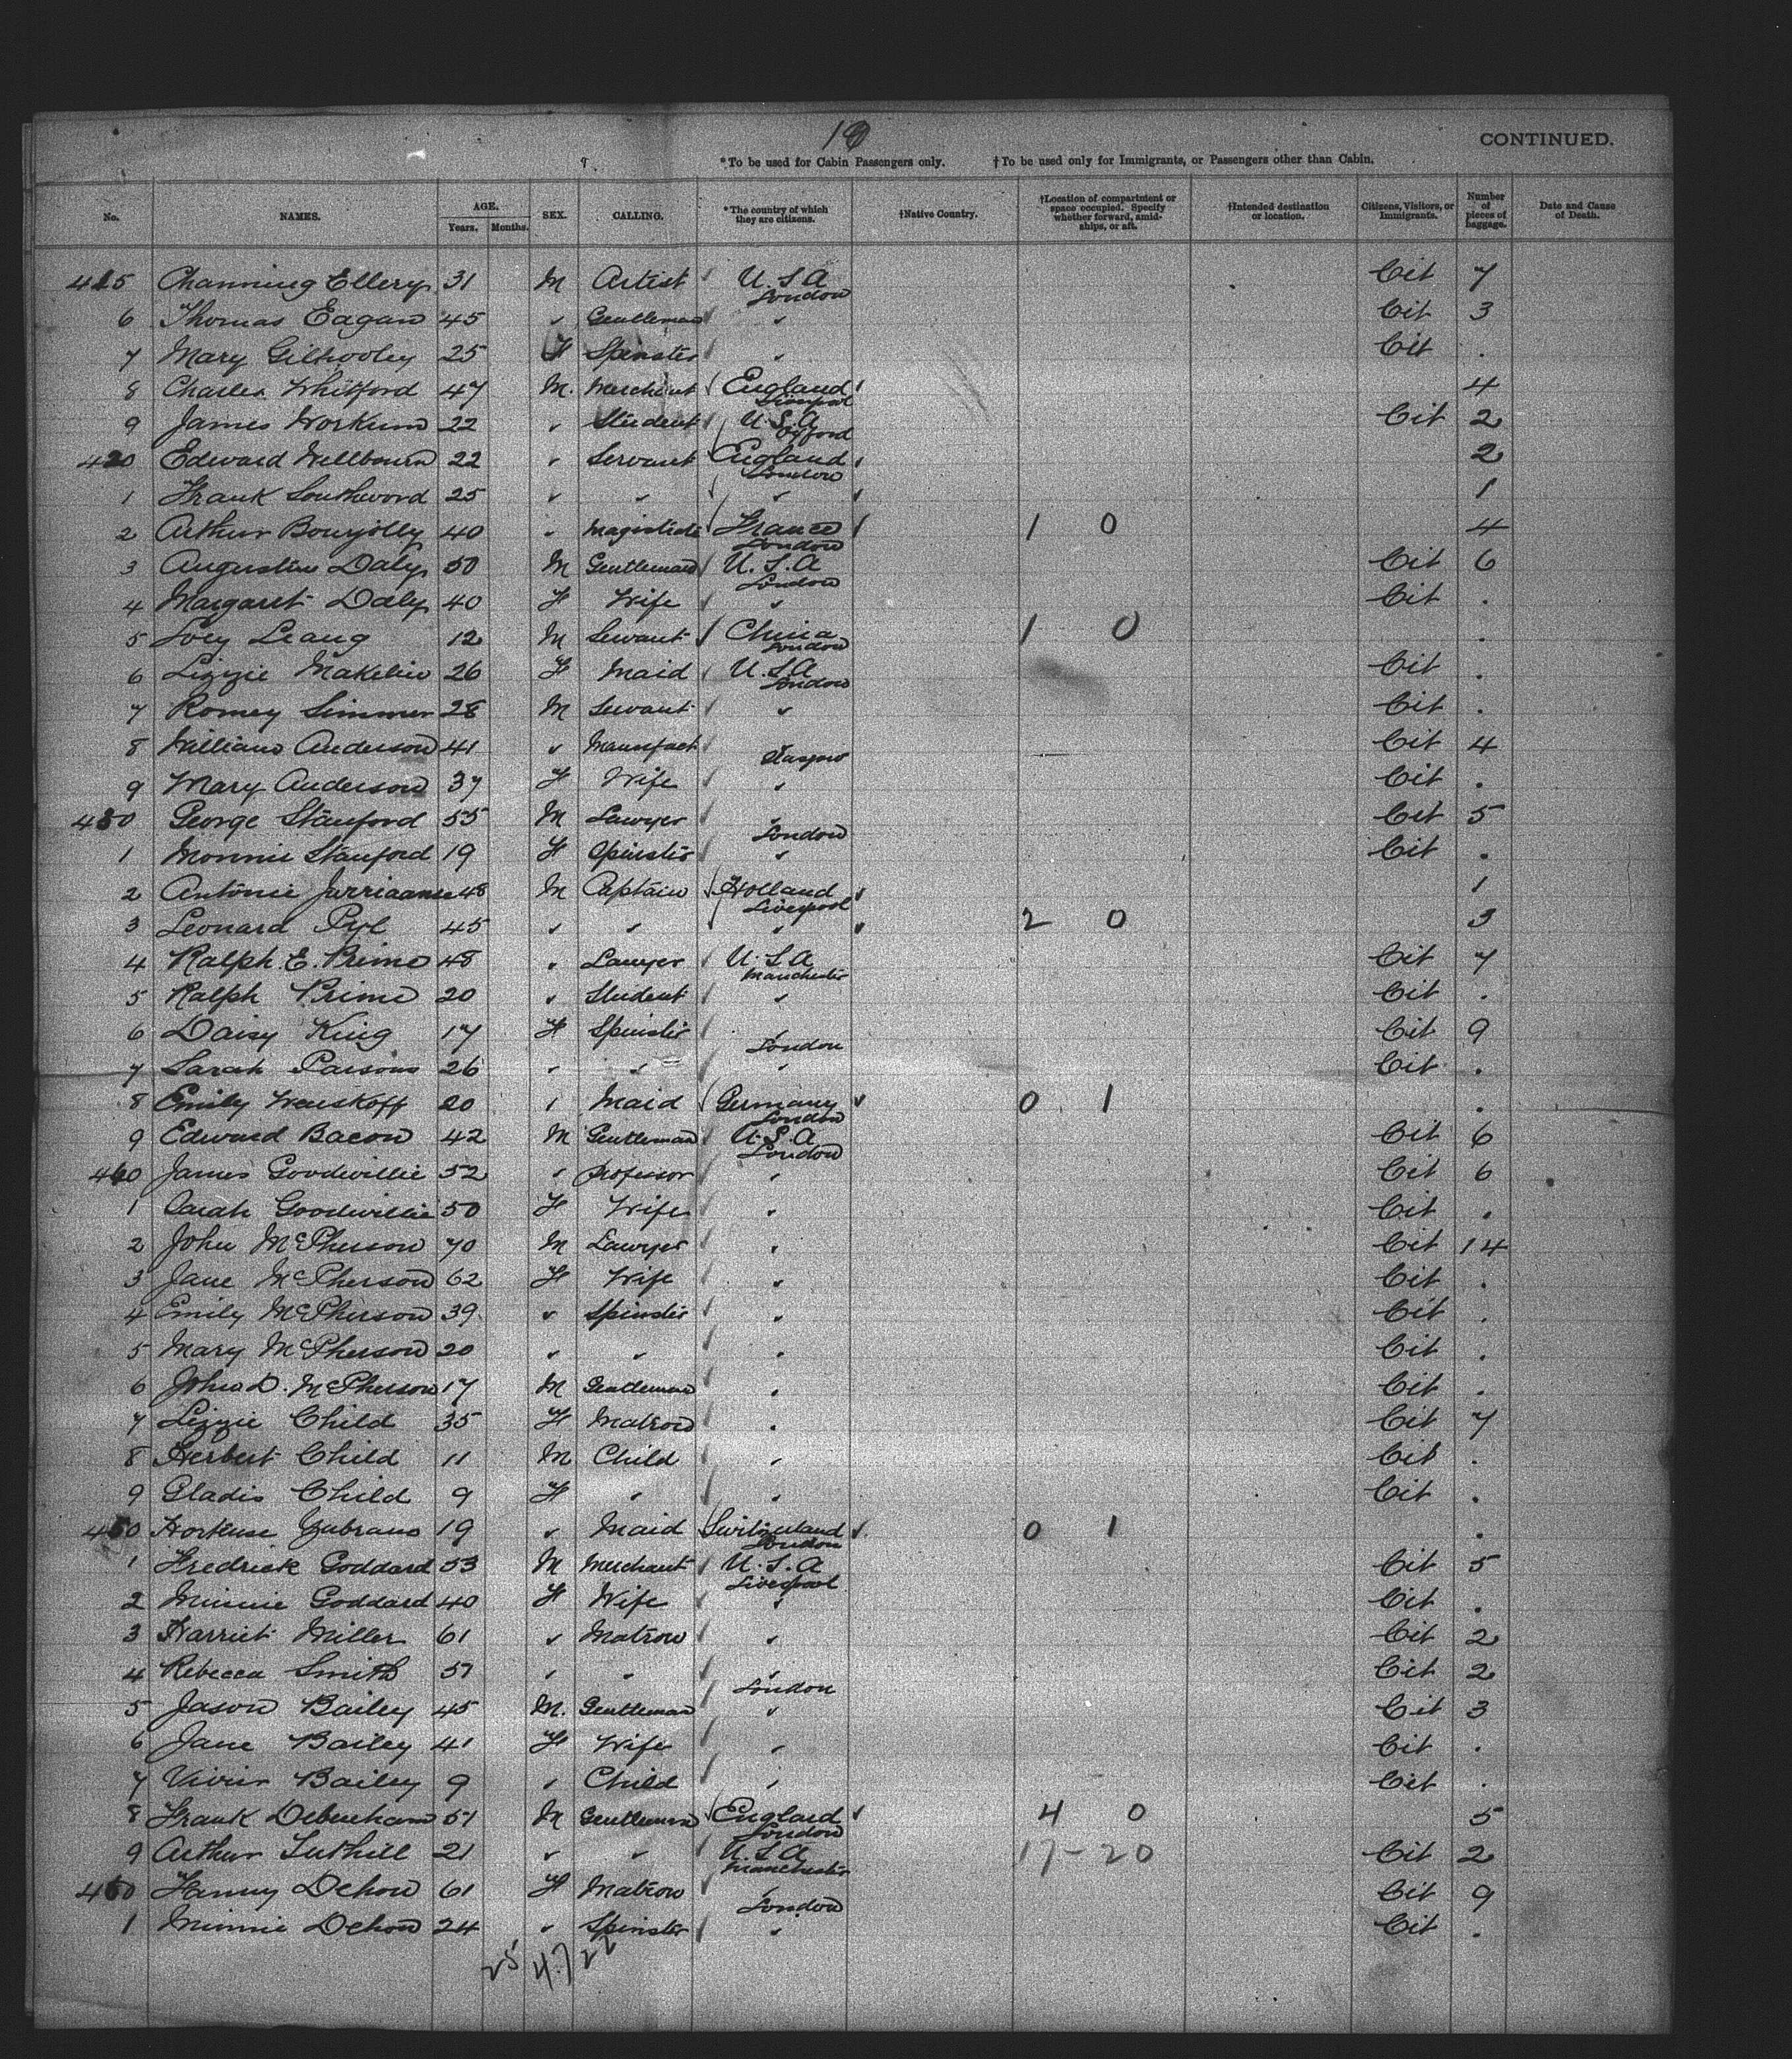 19
CONTINUED.
*To be used for Cabin Passengers only. †To be used only for Immigrants, or Passengers other than Cabin.
No. NAMES. AGE. Years. Months. SEX. CALLING. *The country of which they are citizens. †Native Country. †Location of compartment or space occupied. Specify whether forward, amidships, or aft. †Intended destination or location. Citizens, Visitors, or Immigrants. Number of pieces of baggage. Date and Cause of Death.
415 Channing Ellery 31 M Artist U.S.A London Cit 7
6 Thomas Eagan 45 " Gentleman " Cit 3
7 Mary Gilhooley 25 F Spinster " Cit .
8 Charles Whitford 47 M. Merchant England Liverpool 4
9 James Workum 22 " Student U.S.A Oxford Cit 2
420 Edward Wellbourn 22 " Servant England London 2
1 Frank Southword 25 " " " 1
2 Arthur Bourjolly 40 " Magistrate France London 1 0 4
3 Augustin Daly 50 M Gentleman U.S.A London Cit 6
4 Margaret Daly 40 F Wife " Cit .
5 Leang 12 M Servant China London 1 0 .
6 Lizzie Makelin 26 F Maid U.S.A London Cit .
7 Romey Simmer 28 M Servant " Cit .
8 William Anderson 41 " Manufact " Glasgow Cit 4
9 Mary Anderson 37 F Wife " Cit .
430 George Stanford 55 M Lawyer " London Cit 5
1 Monnie Stanford 19 F Spinster " Cit .
2 Antonie Jurriaanse 48 M Captain Holland Liverpool 1
3 Leonard Pyl 45 " " " 2 0 3
4 Ralph E. Prime 48 " Lawyer U.S.A Manchester Cit 7
5 Ralph Prime 20 " Student " Cit .
6 Daisy King 17 F Spinster " London Cit 9
7 Sarah Parsons 26 " " " Cit .
8 Emily 20 " Maid Germany London 0 1 .
9 Edward Bacon 42 M Gentleman U.S.A London Cit 6
440 James Goodwillie 52 " Professor " Cit 6
1 Sarah Goodwillie 50 F Wife " Cit .
2 John McPherson 70 M Lawyer " Cit 14
3 Jane McPherson 62 F Wife " Cit .
4 Emily McPherson 39 " Spinster " Cit .
5 Mary McPherson 20 " " " Cit .
6 John D. McPherson 17 M Gentleman " Cit .
7 Lizzie Child 35 F Matron " Cit 7
8 Herbert Child 11 M Child " Cit .
9 Gladis Child 9 F " " Cit .
450 Hortense 19 " Maid Switzerland London 0 1 .
1 Fredrick Goddard 53 M Merchant U.S.A Liverpool Cit 5
2 Minnie Goddard 40 F Wife " Cit .
3 Harriet Miller 61 " Matron " Cit 2
4 Rebecca Smith 57 " " " London Cit 2
5 Jason Bailey 45 M. Gentleman " Cit 3
6 Jane Bailey 41 F Wife " Cit .
7 Bailey 9 " Child " Cit .
8 Frank Debenham 51 M Gentleman England London 4 0 5
9 Arthur Tuthill 21 " " U.S.A Manchester 17-20 Cit 2
460 Fanny Dehon 61 F Matron " London Cit 9
1 Minnie Dehon 24 " Spinster " Cit .
25 47 22